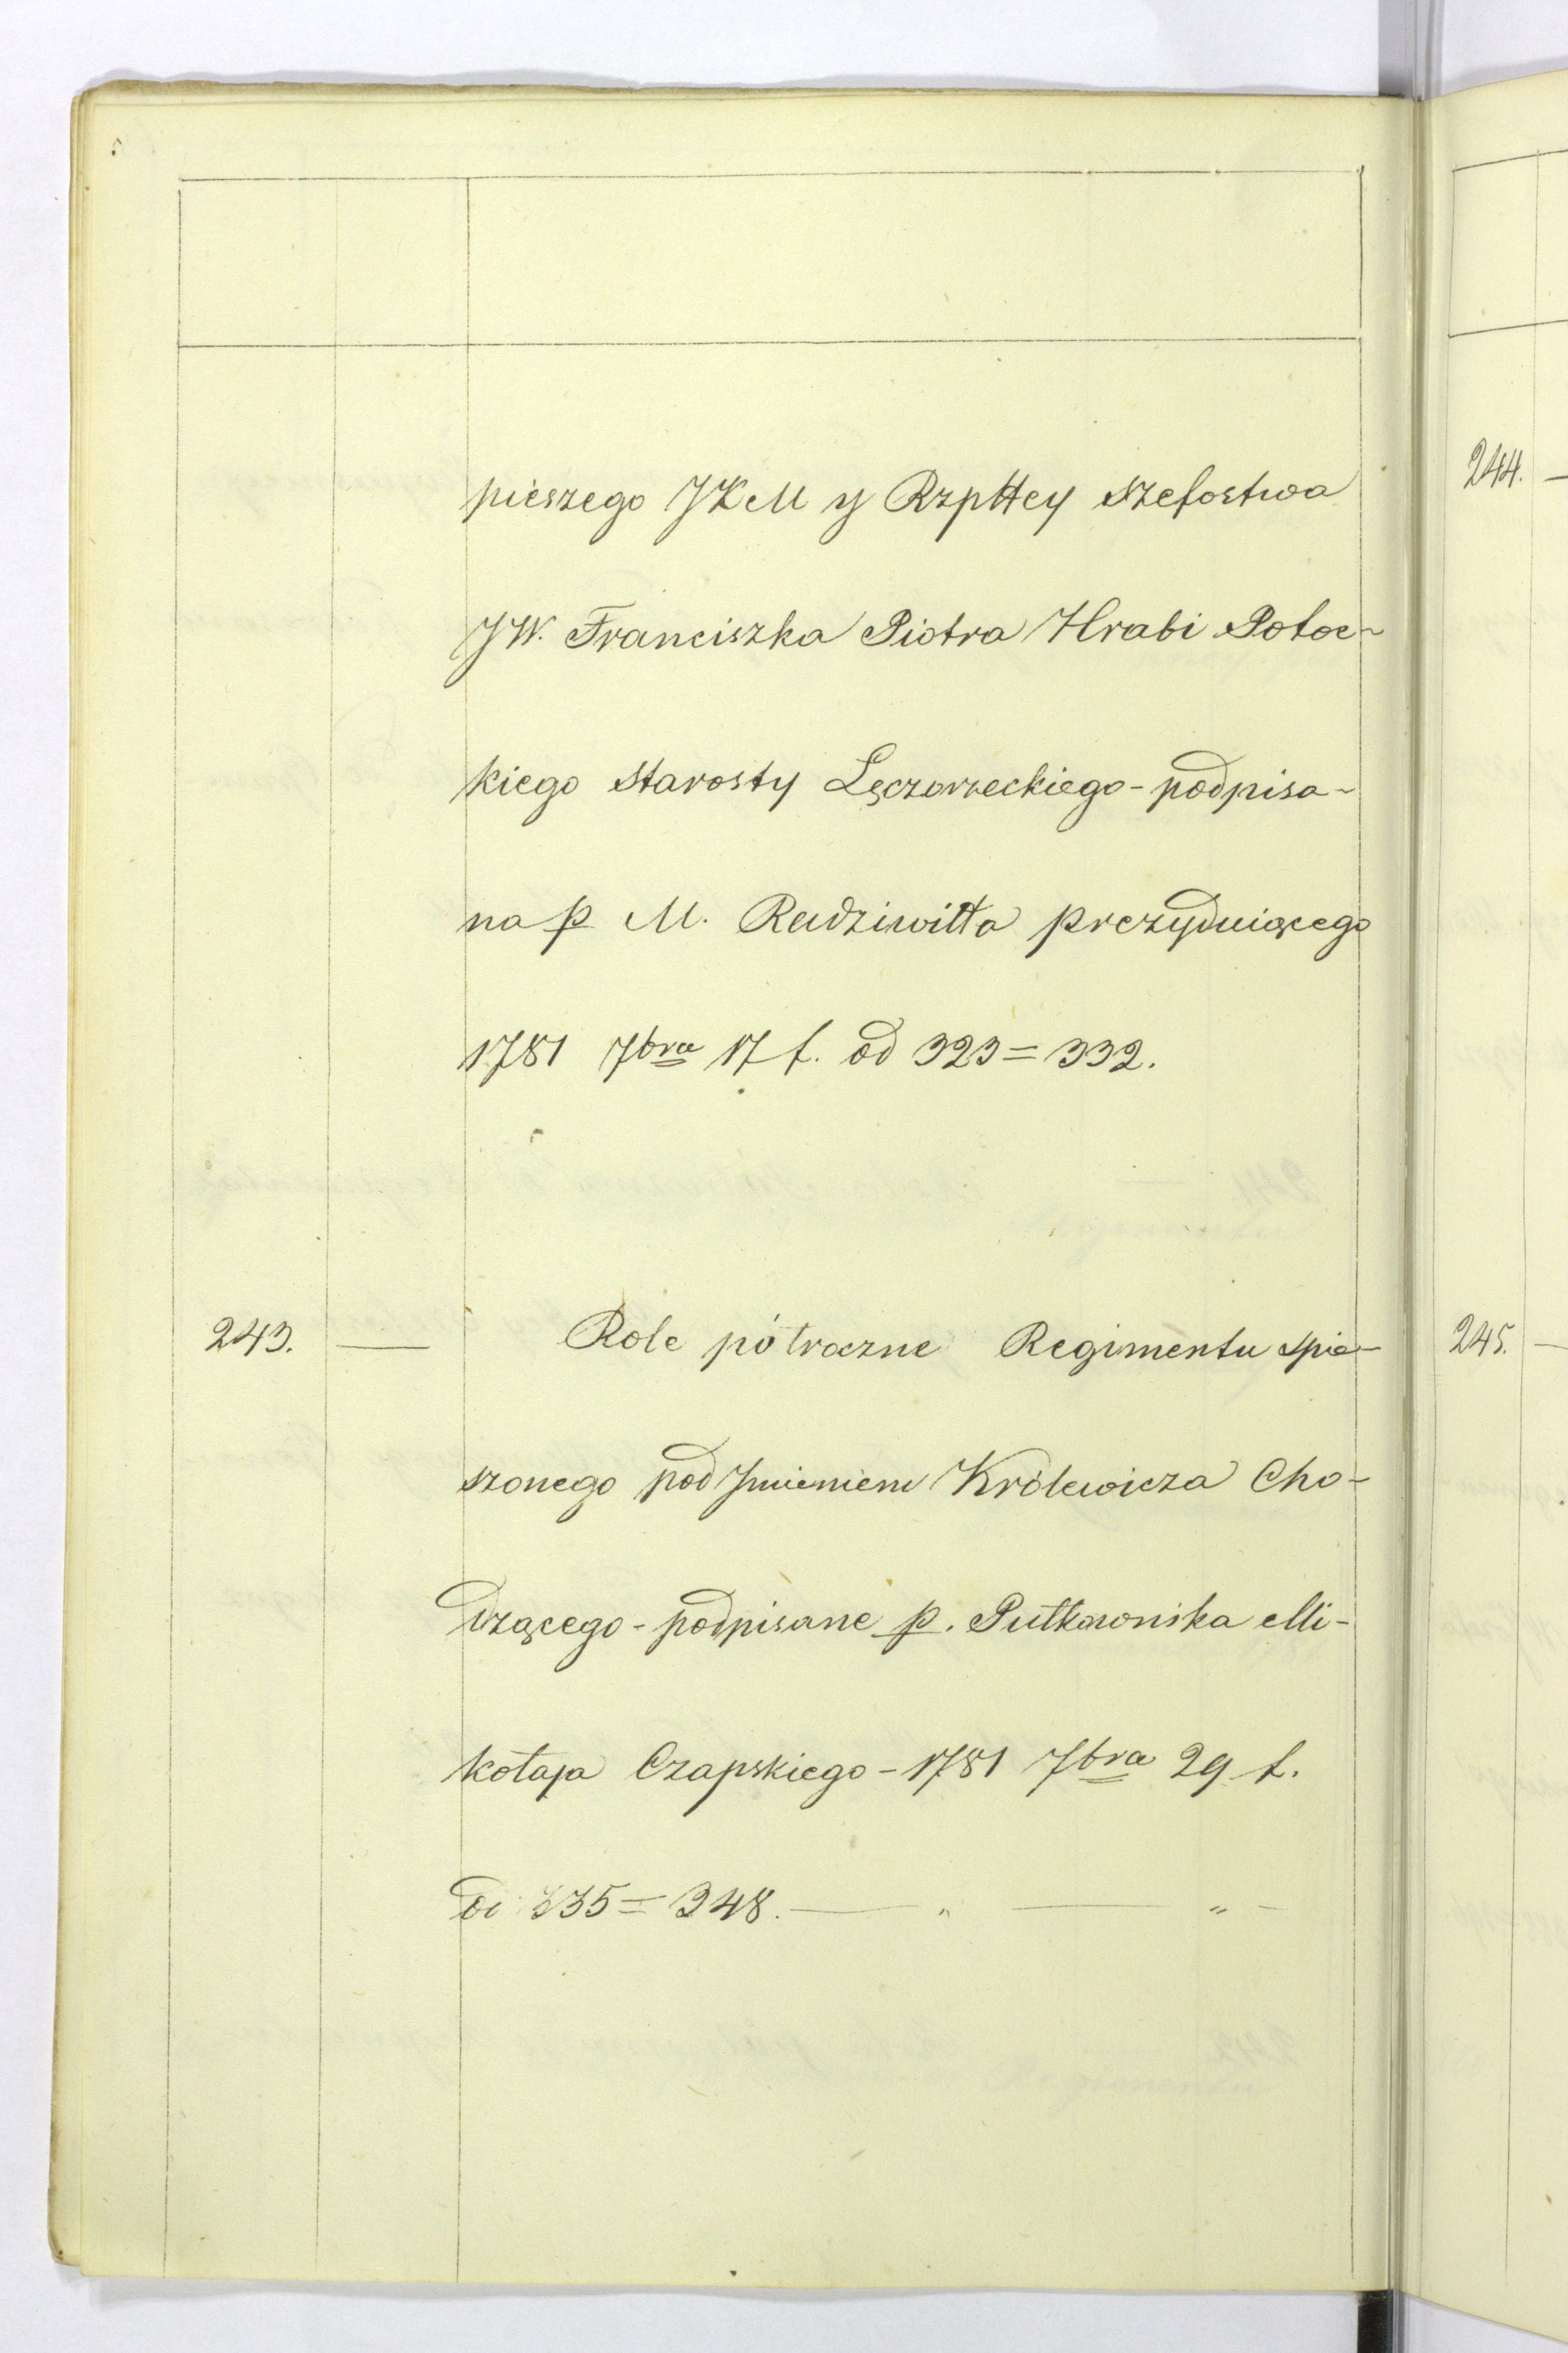 pieszego JKM y Rzpttey Szefostwa
JW. Franciszka Piotra Hrabi Potoc-
kiego Starosty Szczorzeckiego - podpisa-
na p M. Radziwiłła prezyduiącego
1781 7bra 17 f. od 323 = 332.
243. — Role półroczne Regimentu spie-
szonego pod Jmieniem Królewicza Cho-
dzącego - podpisane p. Pułkownika Mi-
kołaja Czapskiego - 1781 7bra 29 f.
od 335 = 348. — „ — „ -
244. -
245. —